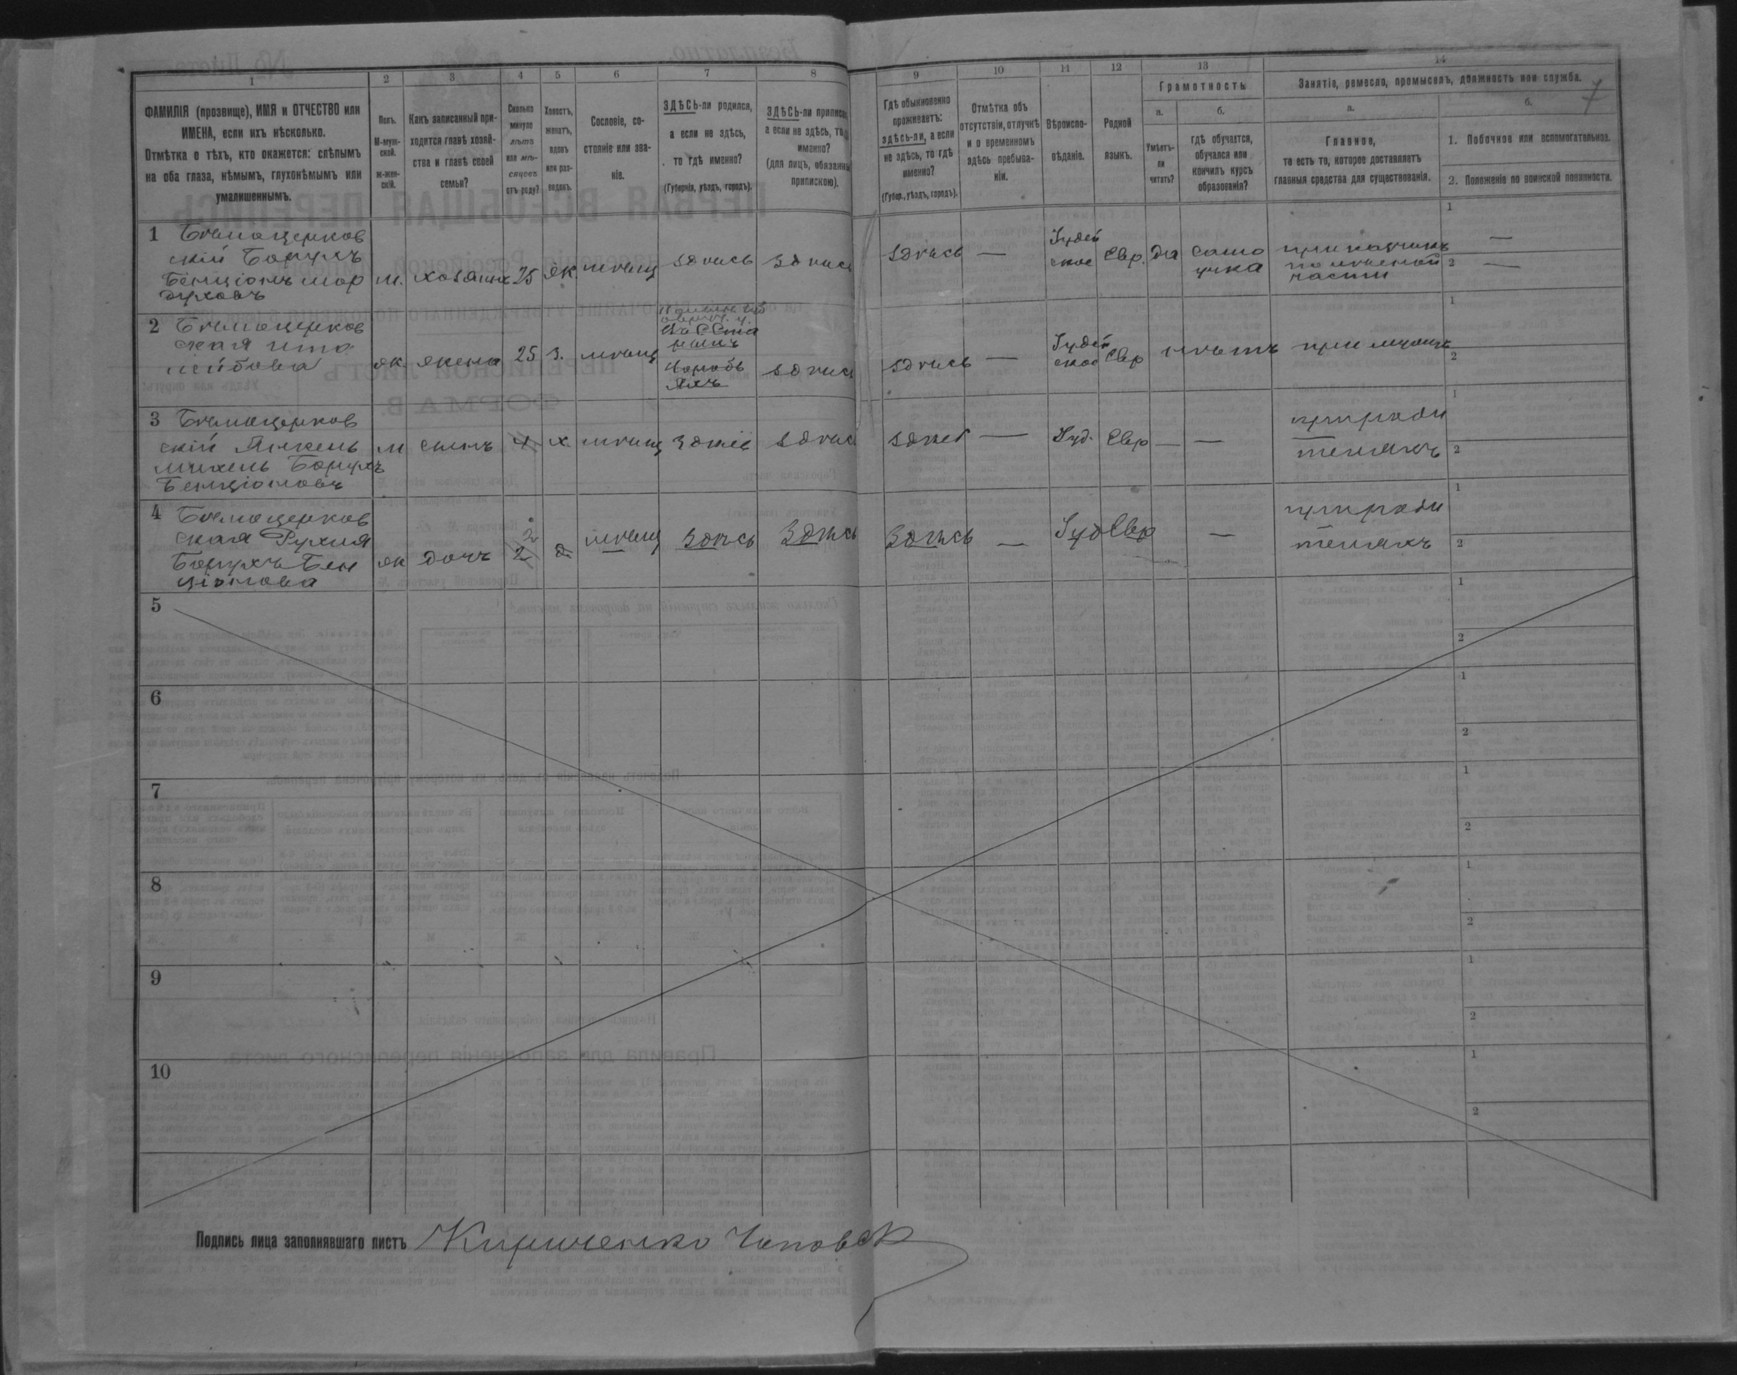 1 2 3 4 5 6 7 8 9 10 11 12 13 14
ФАМИЛІЯ (прозвище), ИМЯ и ОТЧЕСТВО или
ИМЕНА, если ихъ нѣсколько.
Отмѣтка о тѣхъ, кто окажется: слѣпымъ
на оба глаза, нѣмымъ, глухонѣмымъ или
умалишеннымъ.
Полъ.
М-муж-
ской.
Ж-жен-
скій.
Какъ записанный при-
ходится главѣ хозяй-
ства и главѣ своей
семьи?
Сколько
минуло
лѣтъ
или мѣ-
сяцевъ
отъ роду?
Холостъ,
женатъ,
вдовъ
или раз-
веденъ.
Сословіе, со-
стояніе или зва-
ніе.
ЗДѢСЬ-ли родился,
а если не здѣсь,
то гдѣ именно?
(Губернія, уѣздъ, городъ).
ЗДѢСЬ-ли приписанъ,
а если не здѣсь, то гдѣ
именно?
(для лицъ, обязанныхъ
припискою).
Гдѣ обыкновенно
проживаетъ:
здѣсь-ли, а если
не здѣсь, то гдѣ
именно?
(Губер., уѣздъ, городъ).
Отмѣтка объ
отсутствіи, отлучкѣ
и о временномъ
здѣсь пребыва-
ніи.
Вѣроиспо-
вѣданіе.
Родной
языкъ.
Грамотность
а. б.
Умѣетъ-
ли
читать?
гдѣ обучается,
обучался или
кончилъ курсъ
образованія?
Занятіе, ремесло, промыселъ, должность или служба.
а. б.
Главное,
то есть то, которое доставляетъ
главныя средства для существованія.
1. Побочное или вспомогательное.
2. Положеніе по воинской повинности.
7
1 Бѣлоцерков
скій Борухъ
Бенціонъ Мор
духовъ
м. хозяинъ 25 ж мѣщ здѣсь здѣсь здѣсь — Іудей
ское Евр. да само
учка
приказчикъ
по лѣсной
части
1 —
2 —
2 Бѣлоцерков
ская
Лейбова
ж жена 25 з. мѣщ
здѣсь здѣсь — Іудей
ское Евр нѣтъ при мужѣ
1
2
3 Бѣлоцерков
скій Янкель
Михель Борухъ
Бенціоновъ
м сынъ 4 х мѣщ здѣсь здѣсь здѣсь — Іуд. Евр — —
при роди
теляхъ
1
2
4 Бѣлоцерков
ская Рухля
Борухъ Бен
ціонова
ж дочь 2 д мѣщ здѣсь здѣсь здѣсь — Іуд Евр —
при роди
теляхъ
1
2
5 1
2
6 1
2
7 1
2
8 1
2
9 1
2
10 1
2
Подпись лица заполнявшаго листъ